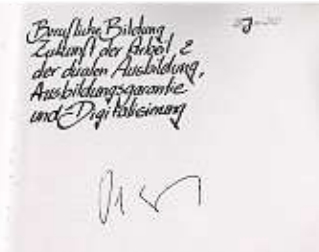 Berufliche Bildung
Zukunft der Arbeit &
der dualen Ausbildung,
Ausbildungsgarantie
und Digitalisierung